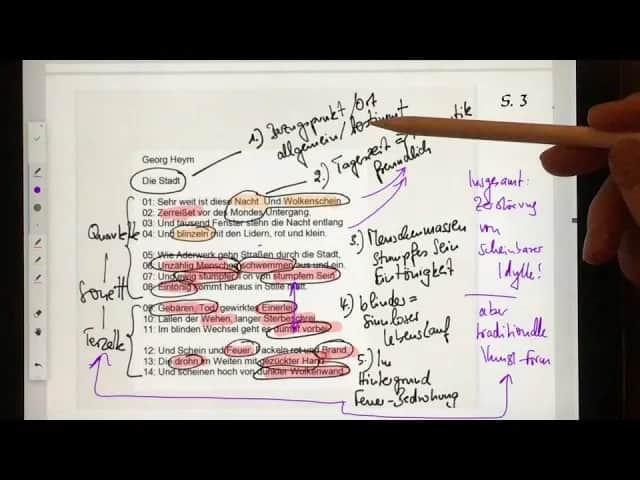 S. 3
1.) Bezugspunkt / Ort
allgemein / bestimmt
2.) Tageszeit =
freundlich
Georg Heym
Die Stadt
01: Sehr weit ist diese Nacht. Und Wolkenschein
02: Zerreißet vor des Mondes Untergang.
03: Und tausend Fenster stehn die Nacht entlang
04: Und blinzeln mit den Lidern, rot und klein.
05: Wie Aderwerk gehn Straßen durch die Stadt,
06: Unzählig Menschen schwemmen aus und ein.
07: Und ewig stumpfer Ton von stumpfem Sein
08: Eintönig kommt heraus in Stille matt.
09: Gebären, Tod, gewirktes Einerlei,
10: Lallen der Wehen, langer Sterbeschrei,
11: Im blinden Wechsel geht es dumpf vorbei.
12: Und Schein und Feuer, Fackeln rot und Brand,
13: Die drohn im Weiten mit gezückter Hand
14: Und scheinen hoch von dunkler Wolkenwand.
Quartette
Sonett
Terzette
3.) Menschenmassen
stumpfes Sein
Eintönigkeit
4.) blindes =
sinnloser
Lebenslauf
5.) Im
Hintergrund
Feuer-Bedrohung
Insgesamt:
Zerstörung
von
scheinbarer
Idylle!
aber
traditionelle
Kunst-form